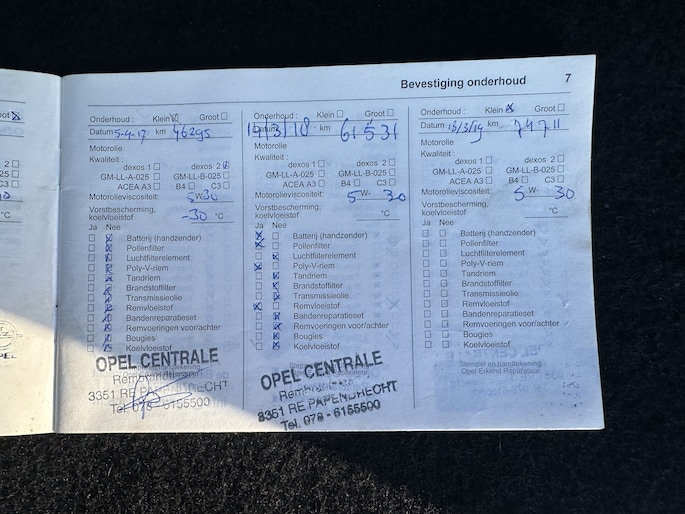 Bevestiging onderhoud 7
Onderhoud : Klein Groot
Datum 5-4-17 km 46295
Motorolie
Kwaliteit :
dexos 1 dexos 2
GM-LL-A-025 GM-LL-B-025
ACEA A3 B4 C3
Motorolieviscositeit: 5W30
Vorstbescherming,
koelvloeistof -30 °C
Ja Nee
Batterij (handzender)
Pollenfilter
Luchtfilterelement
Poly-V-riem
Tandriem
Brandstoffilter
Transmissieolie
Remvloeistof
Bandenreparatieset
Remvoeringen voor/achter
Bougies
Koelvloeistof
OPEL CENTRALE
3351 RE PAPENDRECHT
Tel. 078 - 6155500
Onderhoud : Klein Groot
Datum 3/18 km 61531
Motorolie
Kwaliteit :
dexos 1 dexos 2
GM-LL-A-025 GM-LL-B-025
ACEA A3 B4 C3
Motorolieviscositeit: 5 W- 30
Vorstbescherming,
koelvloeistof °C
Ja Nee
Batterij (handzender)
Pollenfilter
Luchtfilterelement
Poly-V-riem
Tandriem
Brandstoffilter
Transmissieolie
Remvloeistof
Bandenreparatieset
Remvoeringen voor/achter
Bougies
Koelvloeistof
OPEL CENTRALE
3351 RE PAPENDRECHT
Tel. 078 - 6155500
Onderhoud : Klein Groot
Datum /3/19 km 74711
Motorolie
Kwaliteit :
dexos 1 dexos 2
GM-LL-A-025 GM-LL-B-025
ACEA A3 B4 C3
Motorolieviscositeit: 5 W- 30
Vorstbescherming,
koelvloeistof °C
Ja Nee
Batterij (handzender)
Pollenfilter
Luchtfilterelement
Poly-V-riem
Tandriem
Brandstoffilter
Transmissieolie
Remvloeistof
Bandenreparatieset
Remvoeringen voor/achter
Bougies
Koelvloeistof
Stempel en handtekening
Opel Erkend Reparateur